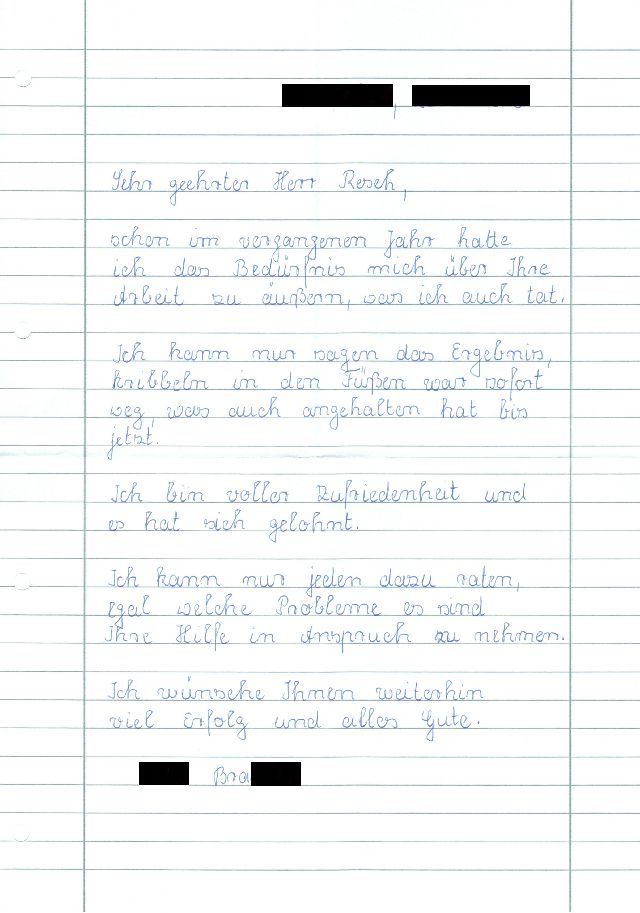 ,
Sehr geehrter Herr Resch,
schon im vergangenen Jahr hatte
ich das Bedürfnis mich über Ihre
Arbeit zu äußern, was ich auch tat.
Ich kann nur sagen das Ergebnis,
kribbeln in den Füßen war sofort
weg, was auch angehalten hat bis
jetzt.
Ich bin voller Zufriedenheit und
es hat sich gelohnt.
Ich kann nur jeden dazu raten,
Egal welche Probleme es sind
Ihre Hilfe in Anspruch zu nehmen.
Ich wünsche Ihnen weiterhin
viel Erfolg und alles Gute.
Bra